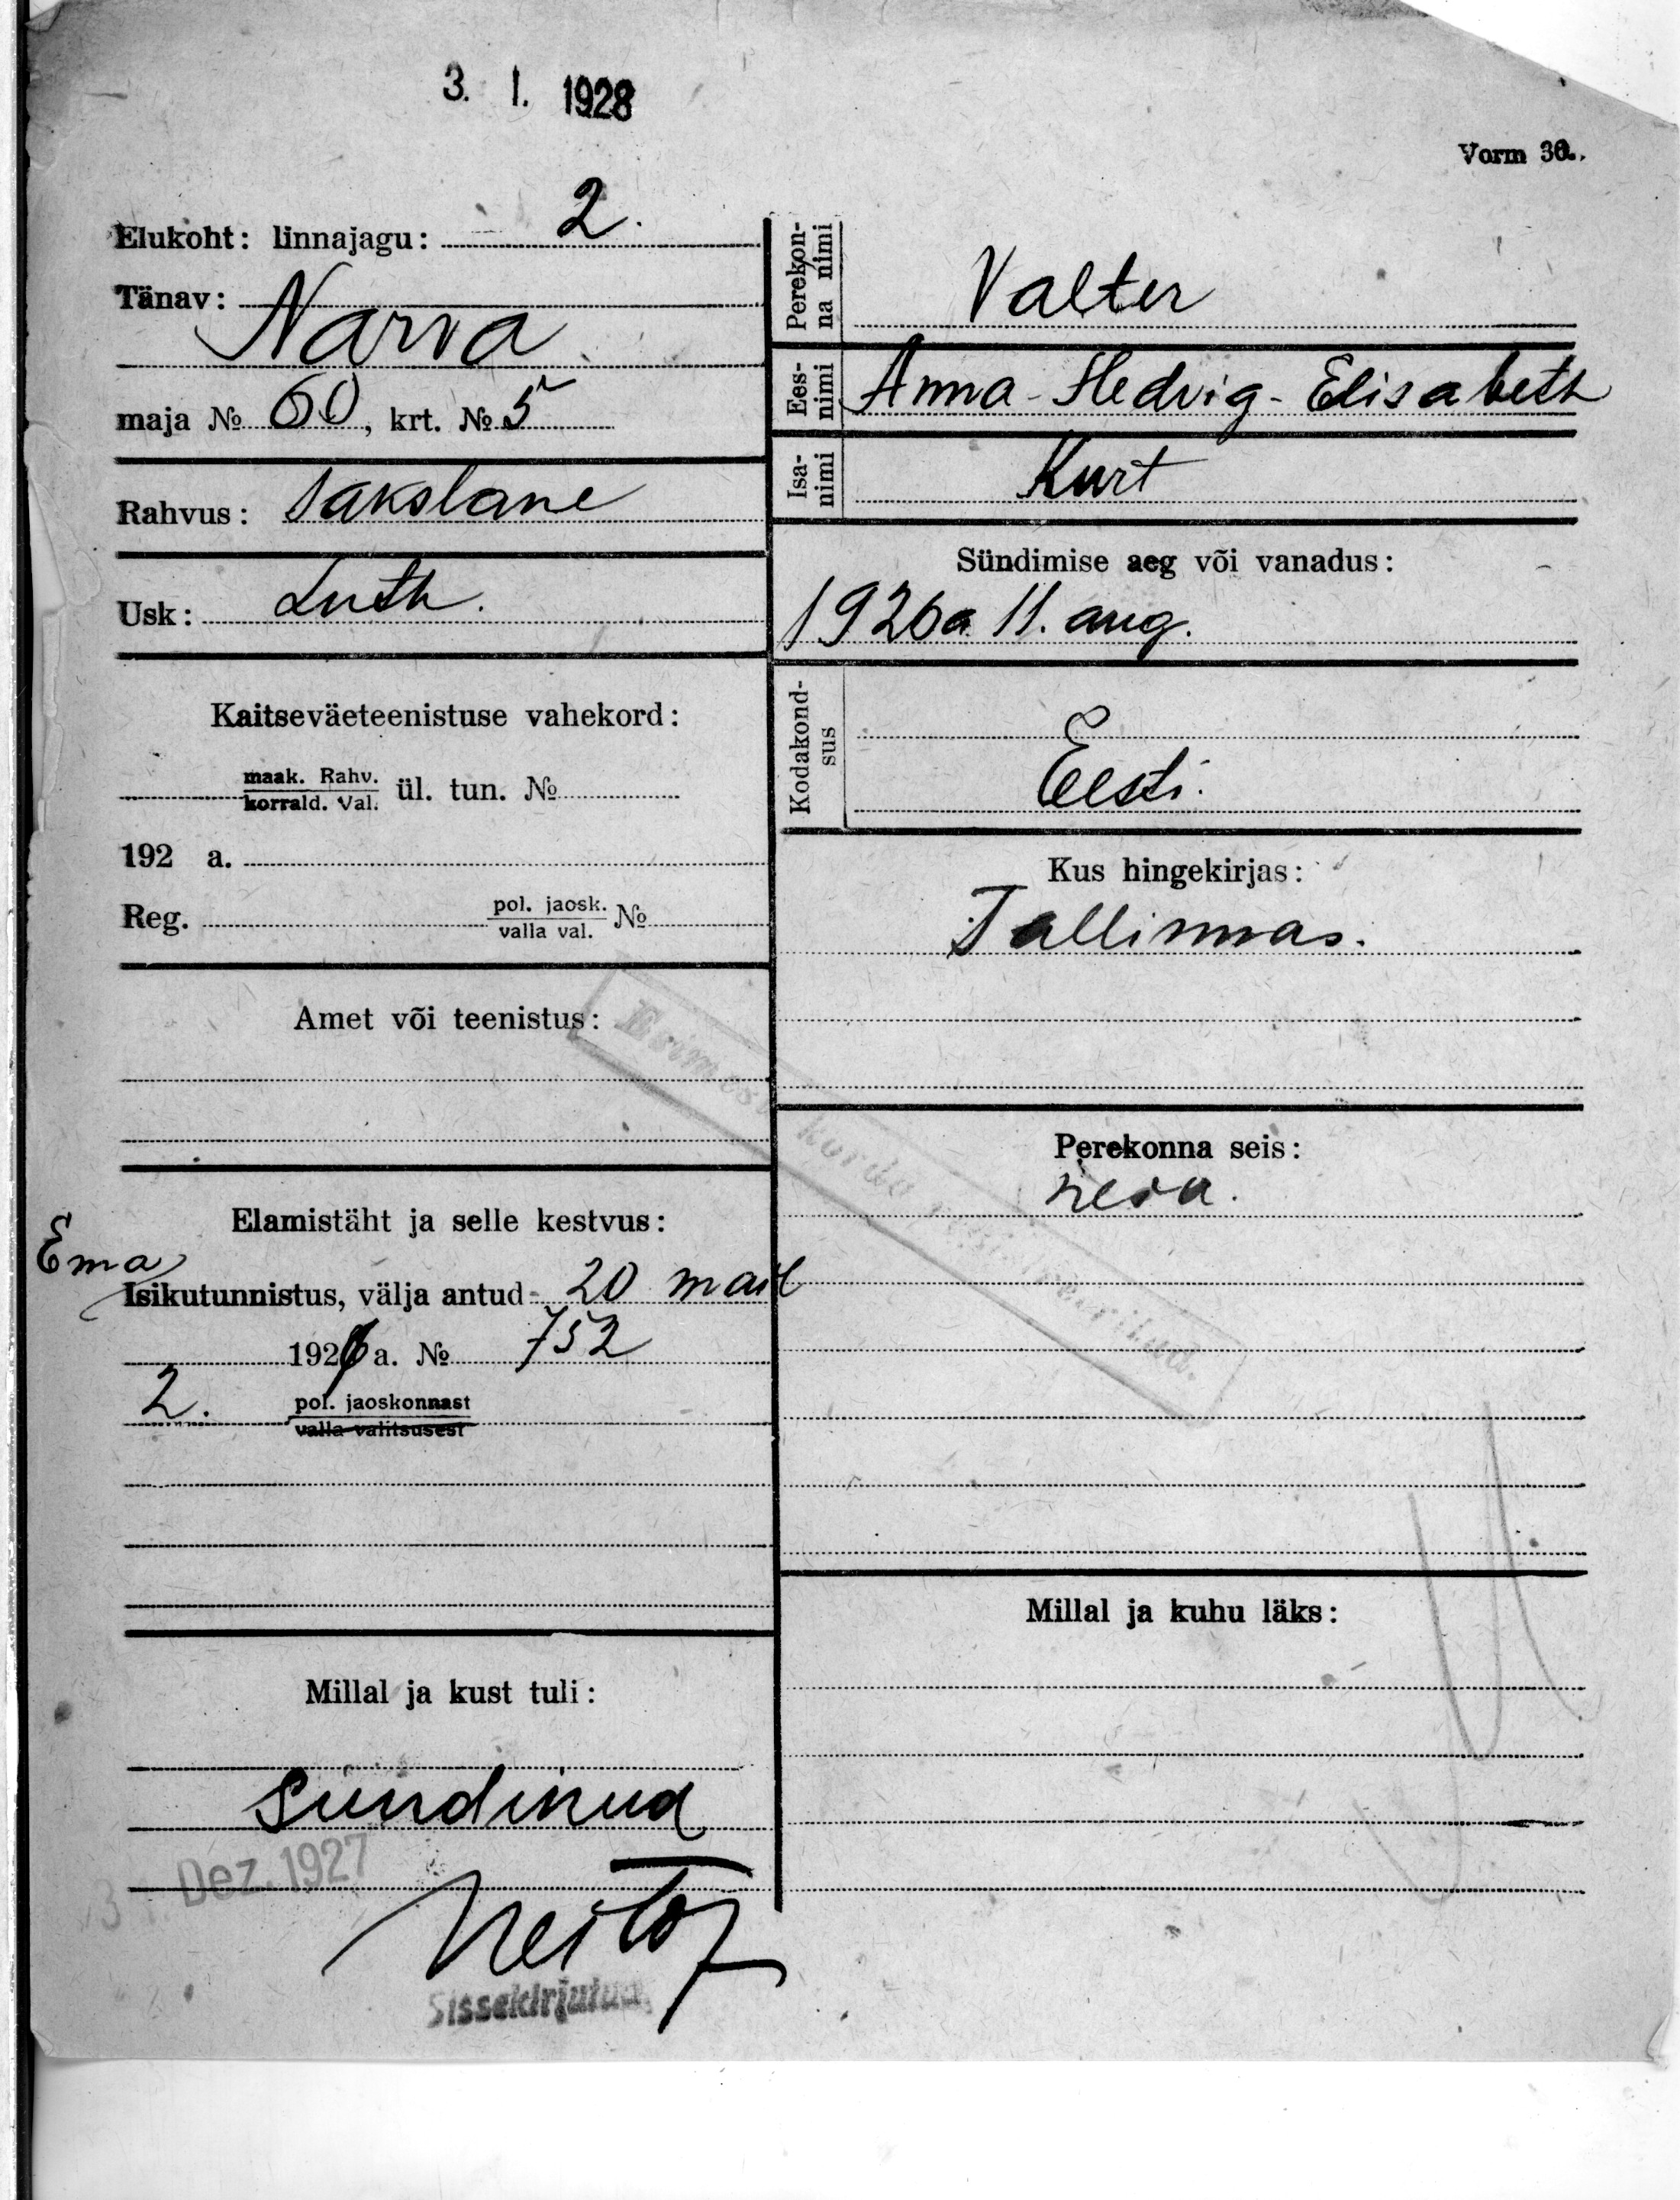 3. I. 1928
Vorm 30.
Elukoht: linnajagu: 2.
Tänav:
Narva
maja № 60, krt. № 5
Rahvus: Sakslane
Usk: Luth.
Kaitseväeteenistuse vahekord:
maak. Rahv.
korrald. Val. ül. tun. №
192 a.
Reg. pol. jaosk. №
valla val.
Amet või teenistus:
Elamistäht ja selle kestvus:
Ema
Isikutunnistus, välja antud 20 mail
1926 a. № 752
2. pol. jaoskonnast
valla valitsusest
Millal ja kust tuli:
Sündinud
Dez. 1927
Sissekirjutud
Perekon-
na nimi
Valter
Ees-
nimi
Anna-Hedvig-Elisabeth
Isa-
nimi
Kurt
Sündimise aeg või vanadus:
1926a 11. aug.
Kodakond-
sus
Eesti.
Kus hingekirjas:
Tallinnas.
Esimest korda
Perekonna seis:
neiu.
Millal ja kuhu läks: